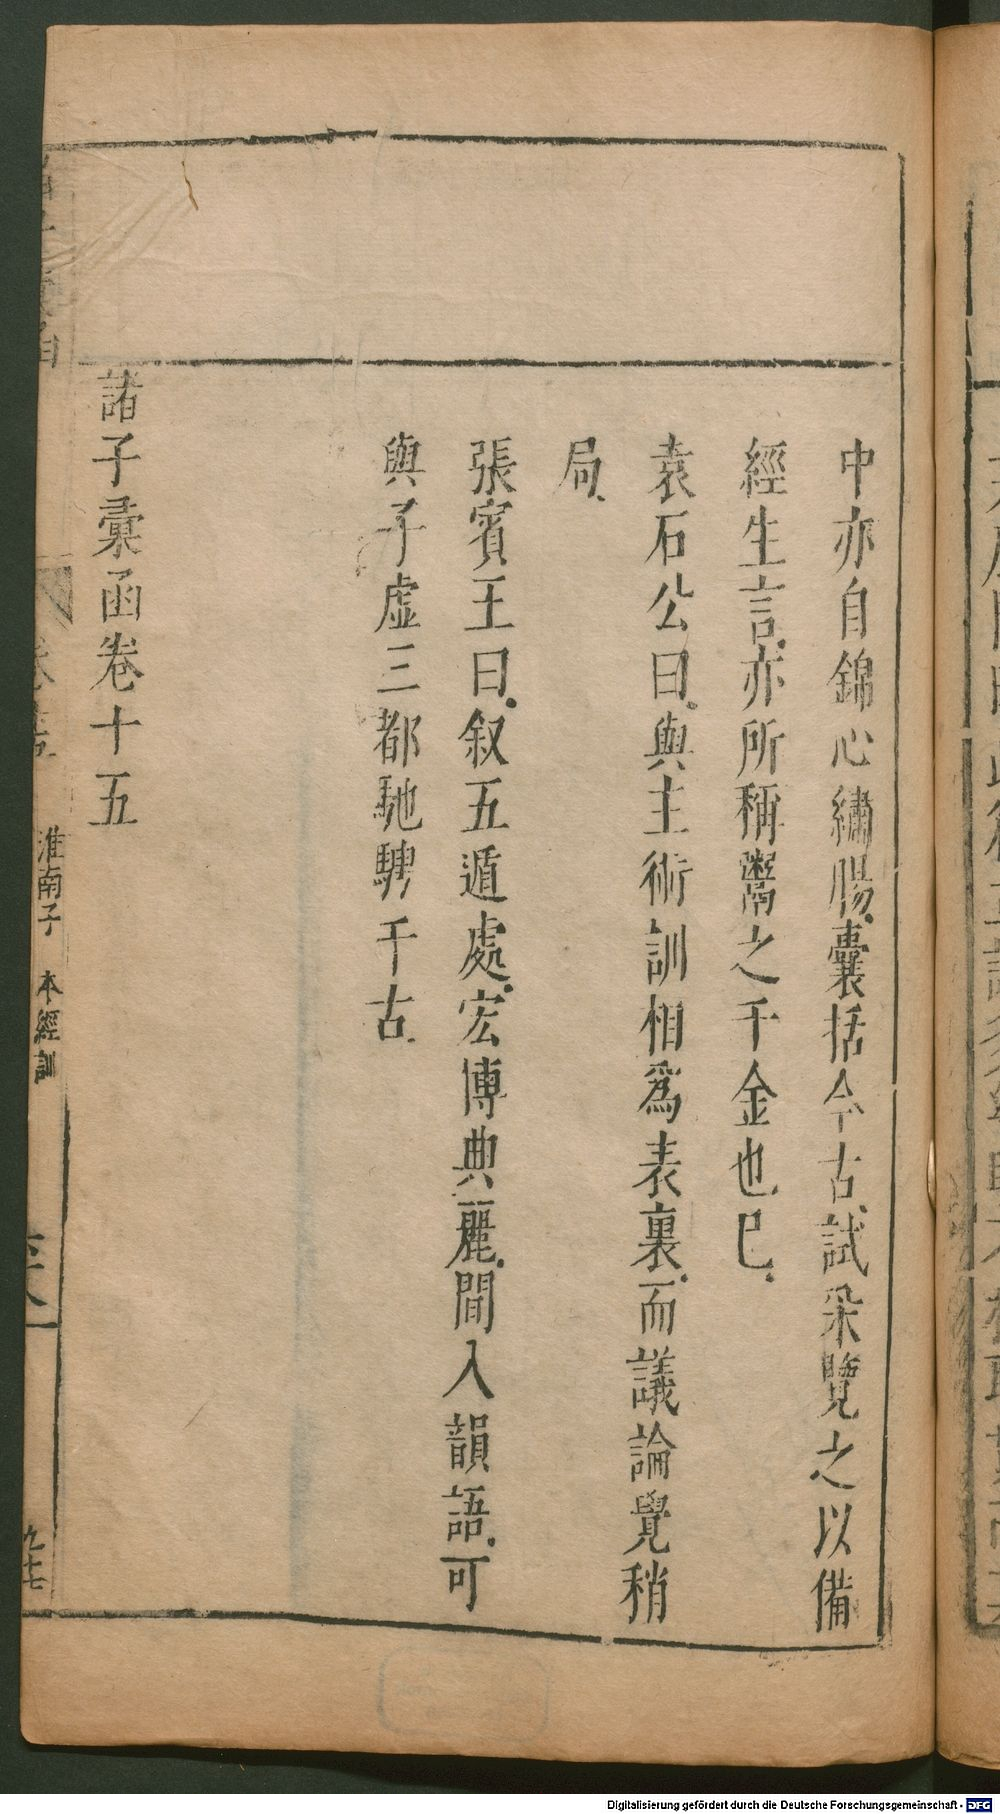 中亦自錦心繡腸囊括今古試采覽之以備
經生言亦所稱鬻之千金也已
袁石公曰與主術訓相爲表裏而議論覺稍
局
張賓王曰叙五遁處宏博典麗間入韻語可
與子虛三都馳騁千古
諸子彙函卷十五
淮南子 本經訓
九十七
Digitalisierung gefördert durch die Deutsche Forschungsgemeinschaft - DFG